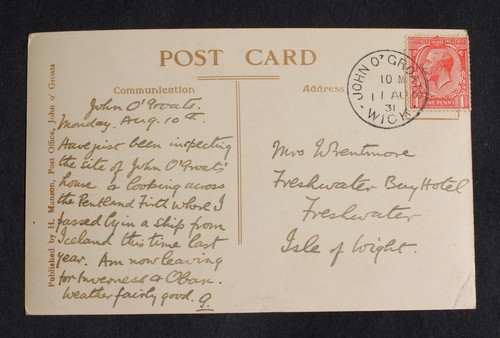 POST CARD
Communication
Address
Published by H. Manson, Post Office, John o' Groats
John O'Groats.
Monday. Aug. 10th.
Have just been inspecting
the site of John O'Groats'
house & looking across
the Pentland Firth where I
passed by in a ship from
Iceland this time last
year. Am now leaving
for Inverness & Oban.
Weather fairly good. G.
JOHN O' GROATS
10 M
11 AU
31
WICK
ONE PENNY
Mrs Wrentmore
Freshwater Bay Hotel
Freshwater
Isle of Wight.